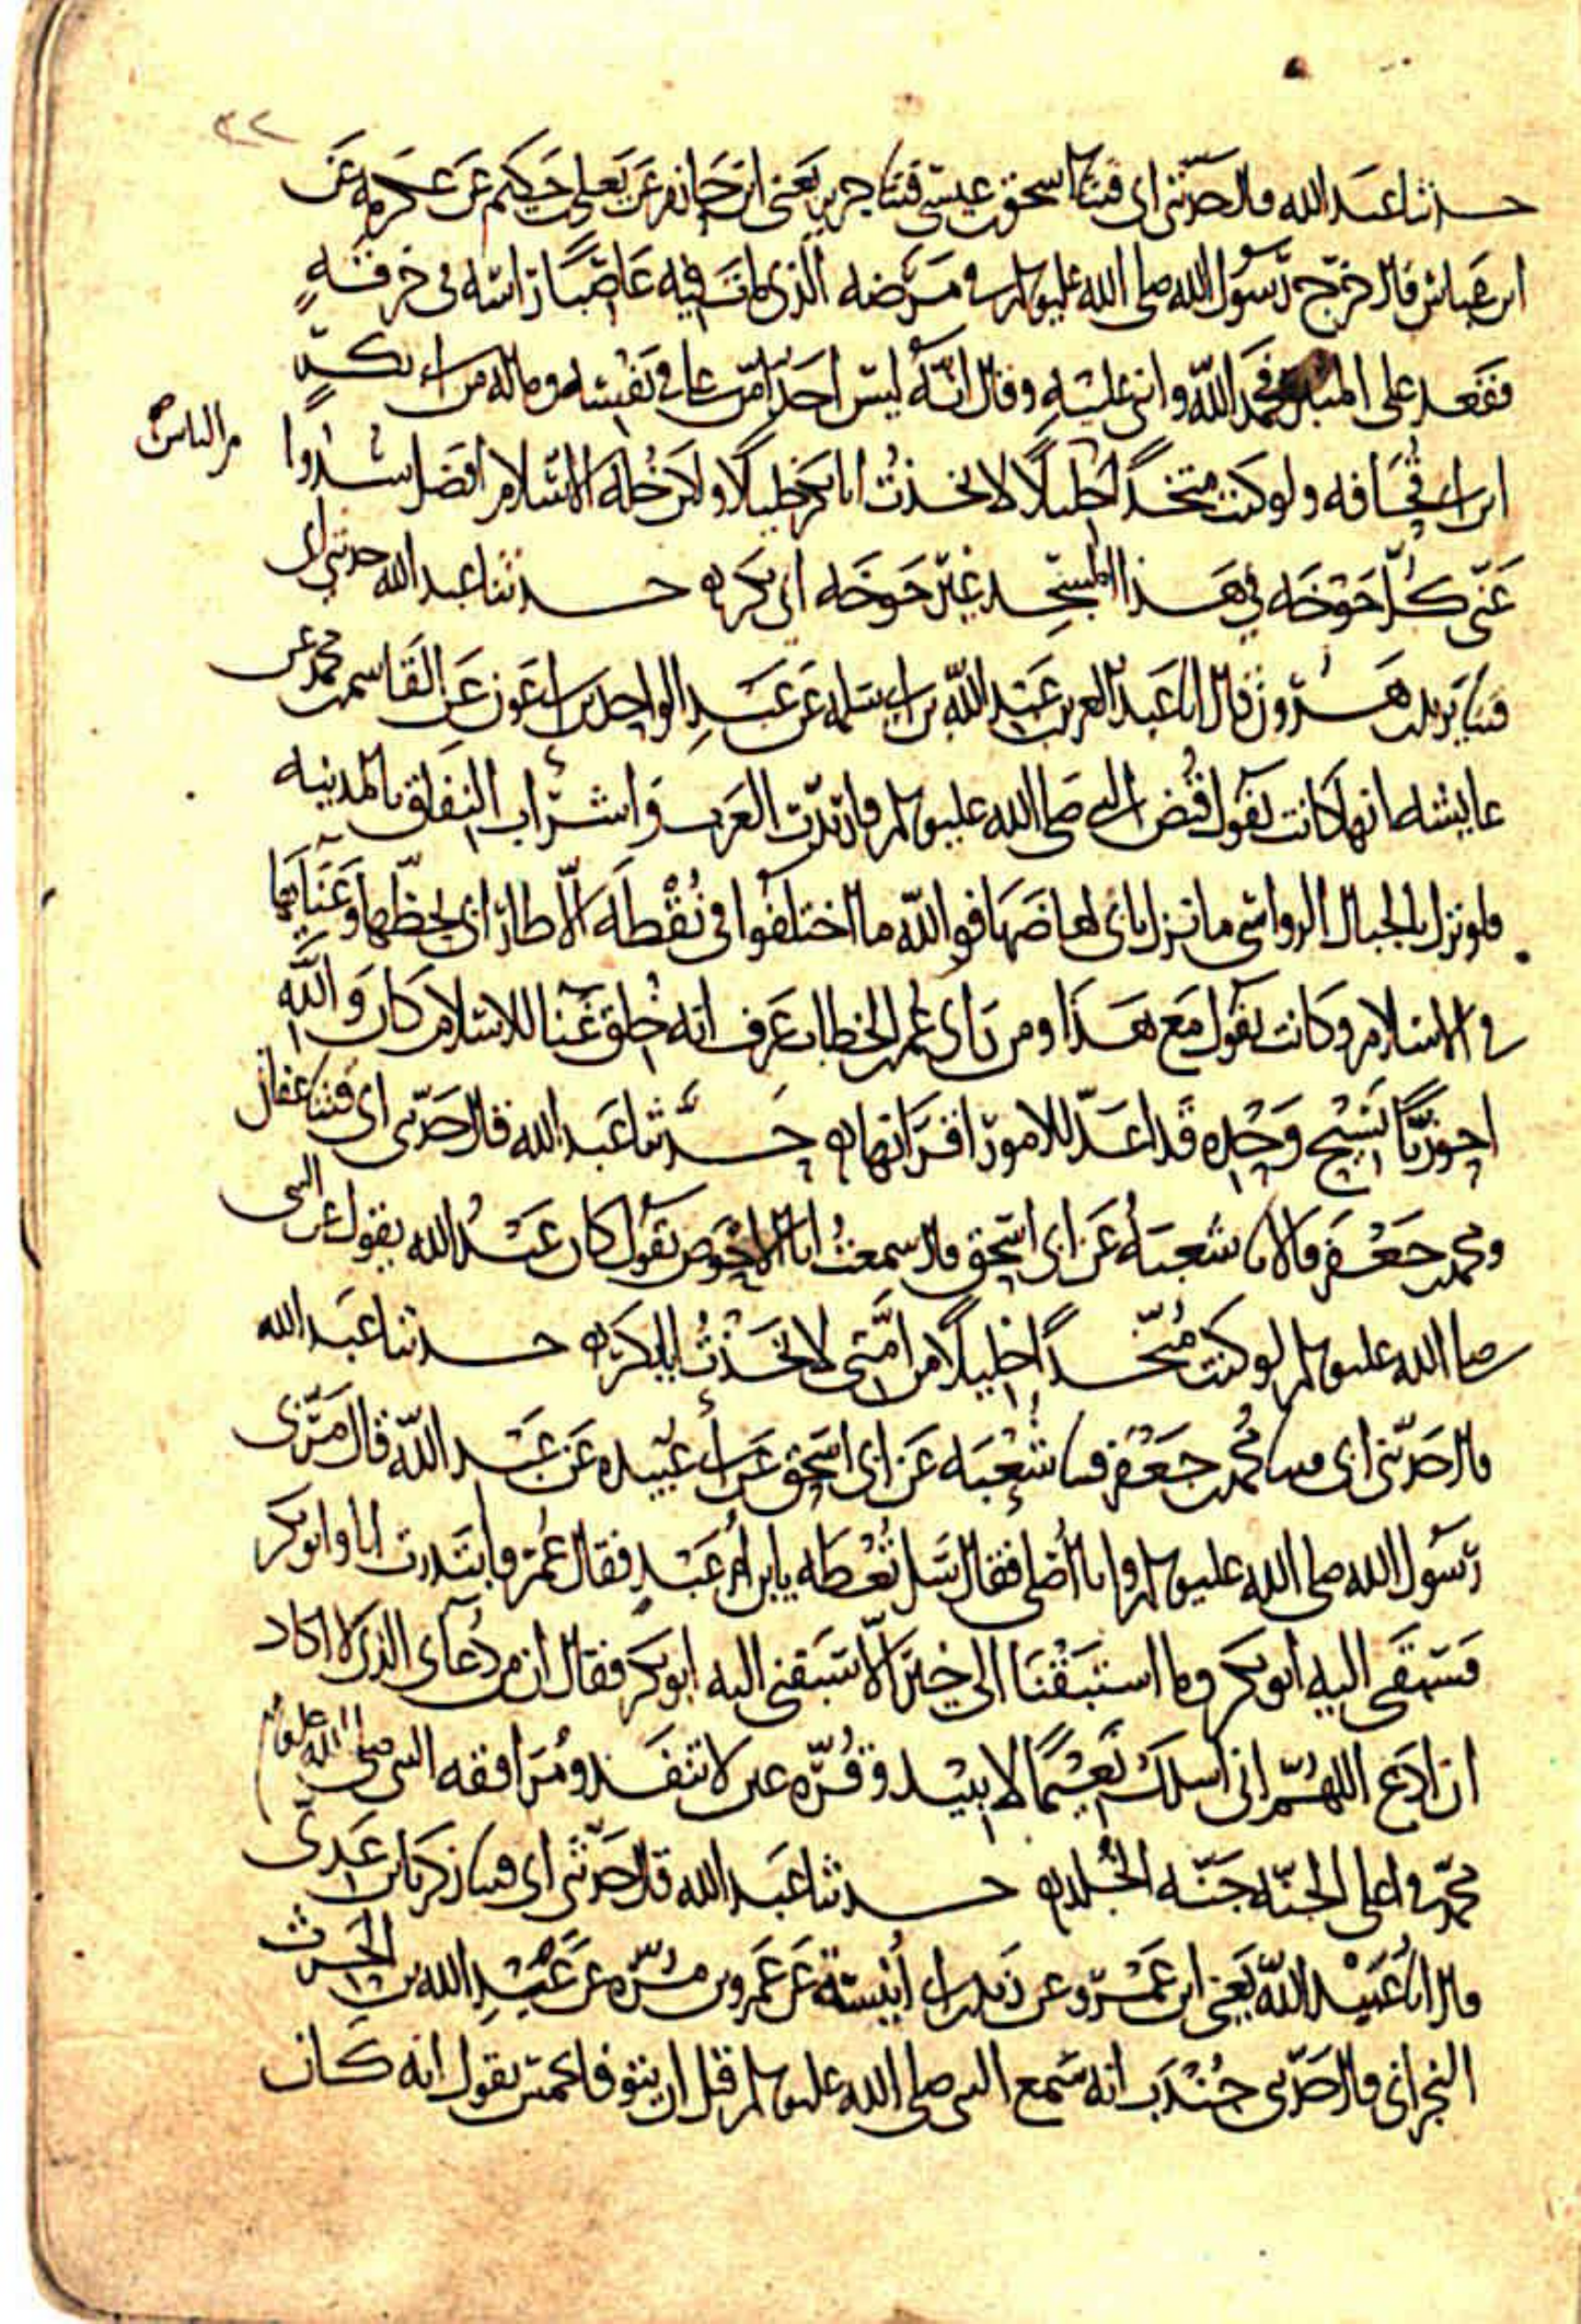 ٣٢
حدثنا عبد الله قال حدثني ابي قثنا اسحق بن عيسى قثنا جرير يعني ابن حازم عن يعلى بن حكيم عن عكرمه عن
ابن عباس قال خرج رسول الله صلى الله عليه وسلم في مرضه الذي مات فيه عاصبا راسه في خرقه
فقعد على المنبر فحمد الله واثنى عليه وقال انه ليس احد امن علي في نفسه وماله من ابي بكر
من الناس
ابن ابي قحافه ولو كنت متخذا خليلا لاتخذت ابا بكر خليلا ولكن خله الاسلام افضل سدوا
عني كل خوخه في هذا المسجد غير خوخه ابي بكر حدثنا عبد الله حدثني ابي
قثنا يزيد بن هرون قال انا عبد العزيز بن عبد الله بن ابي سلمه عن عبد الواحد بن ابي عون عن القاسم بن محمد عن
عايشه انها كانت تقول قبض النبي صلى الله عليه وسلم فارتدت العرب واشراب النفاق بالمدينه
فلو نزل بالجبال الرواسي ما نزل بابي لهاضها فوالله ما اختلفوا في نقطه الا طار ابي بحظها وعنايها
في الاسلام وكانت تقول مع هذا ومن راى عمر بن الخطاب عرف انه خلق غنا للاسلام كان والله
احوزيا نسيج وحده قد اعد للامور اقرانها حدثنا عبد الله قال حدثني ابي قثنا عفان
ومحمد بن جعفر قالا نا شعبه عن ابي اسحق قال سمعت ابا الاحوص يقول كان عبد الله يقول عن النبي
صلى الله عليه وسلم لو كنت متخذا خليلا من امتي لاتخذت ابا بكر حدثنا عبد الله
قال حدثني ابي قثنا محمد بن جعفر قثنا شعبه عن ابي اسحق عن ابي عبيده عن عبد الله قال مر بي
رسول الله صلى الله عليه وسلم وانا اصلي فقال سل تعطه يابن ام عبد فقال عمر فابتدرت انا وابو بكر
فسبقني اليه ابو بكر وما استبقنا الى خير الا سبقني اليه ابو بكر فقال ان من دعاي الذي لا اكاد
ان ادع اللهم اني اسلك نعيما لا يبيد وقره عين لا تنفد ومرافقه النبي صلى الله عليه وسلم
محمد في اعلى الجنه جنه الخلد حدثنا عبد الله قال حدثني ابي قثنا زكريا بن عدي
قال انا عبيد الله يعني ابن عمرو عن زيد بن ابي انيسة عن عمرو بن مره عن عبد الله بن الحرث
النجراني قال حدثني جندب انه سمع النبي صلى الله عليه وسلم قبل ان يتوفا بخمس يقول انه كان